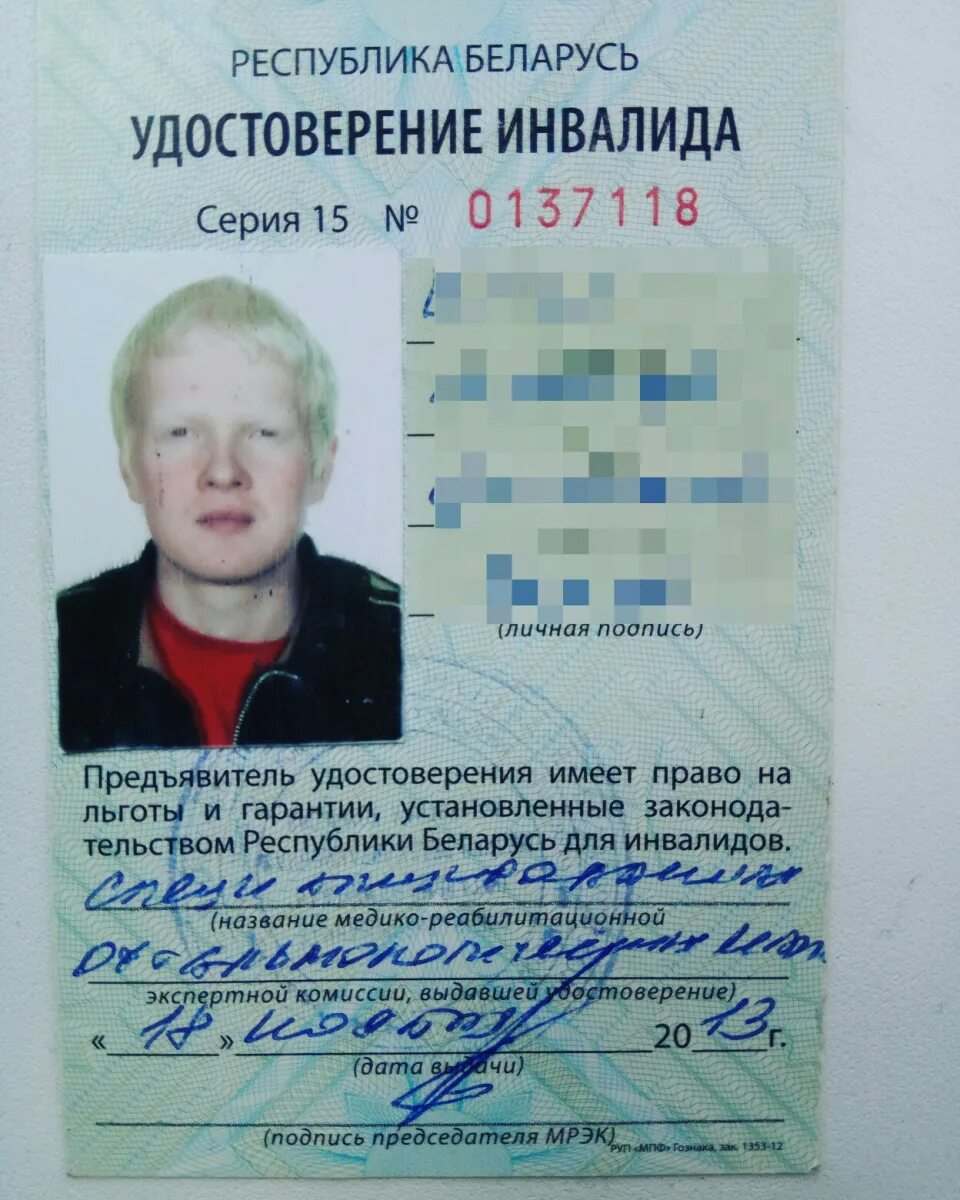 РЕСПУБЛИКА БЕЛАРУСЬ
УДОСТОВЕРЕНИЕ ИНВАЛИДА
Серия 15 № 0137118
(личная подпись)
Предъявитель удостоверения имеет право на
льготы и гарантии, установленные законода-
тельством Республики Беларусь для инвалидов.
(название медико-реабилитационной
офтальмологическая
экспертной комиссии, выдавшей удостоверение)
« 18 » ноября 2013 г.
(дата выдачи)
(подпись председателя МРЭК)
РУП «МПФ» Гознака, зак. 1353-12